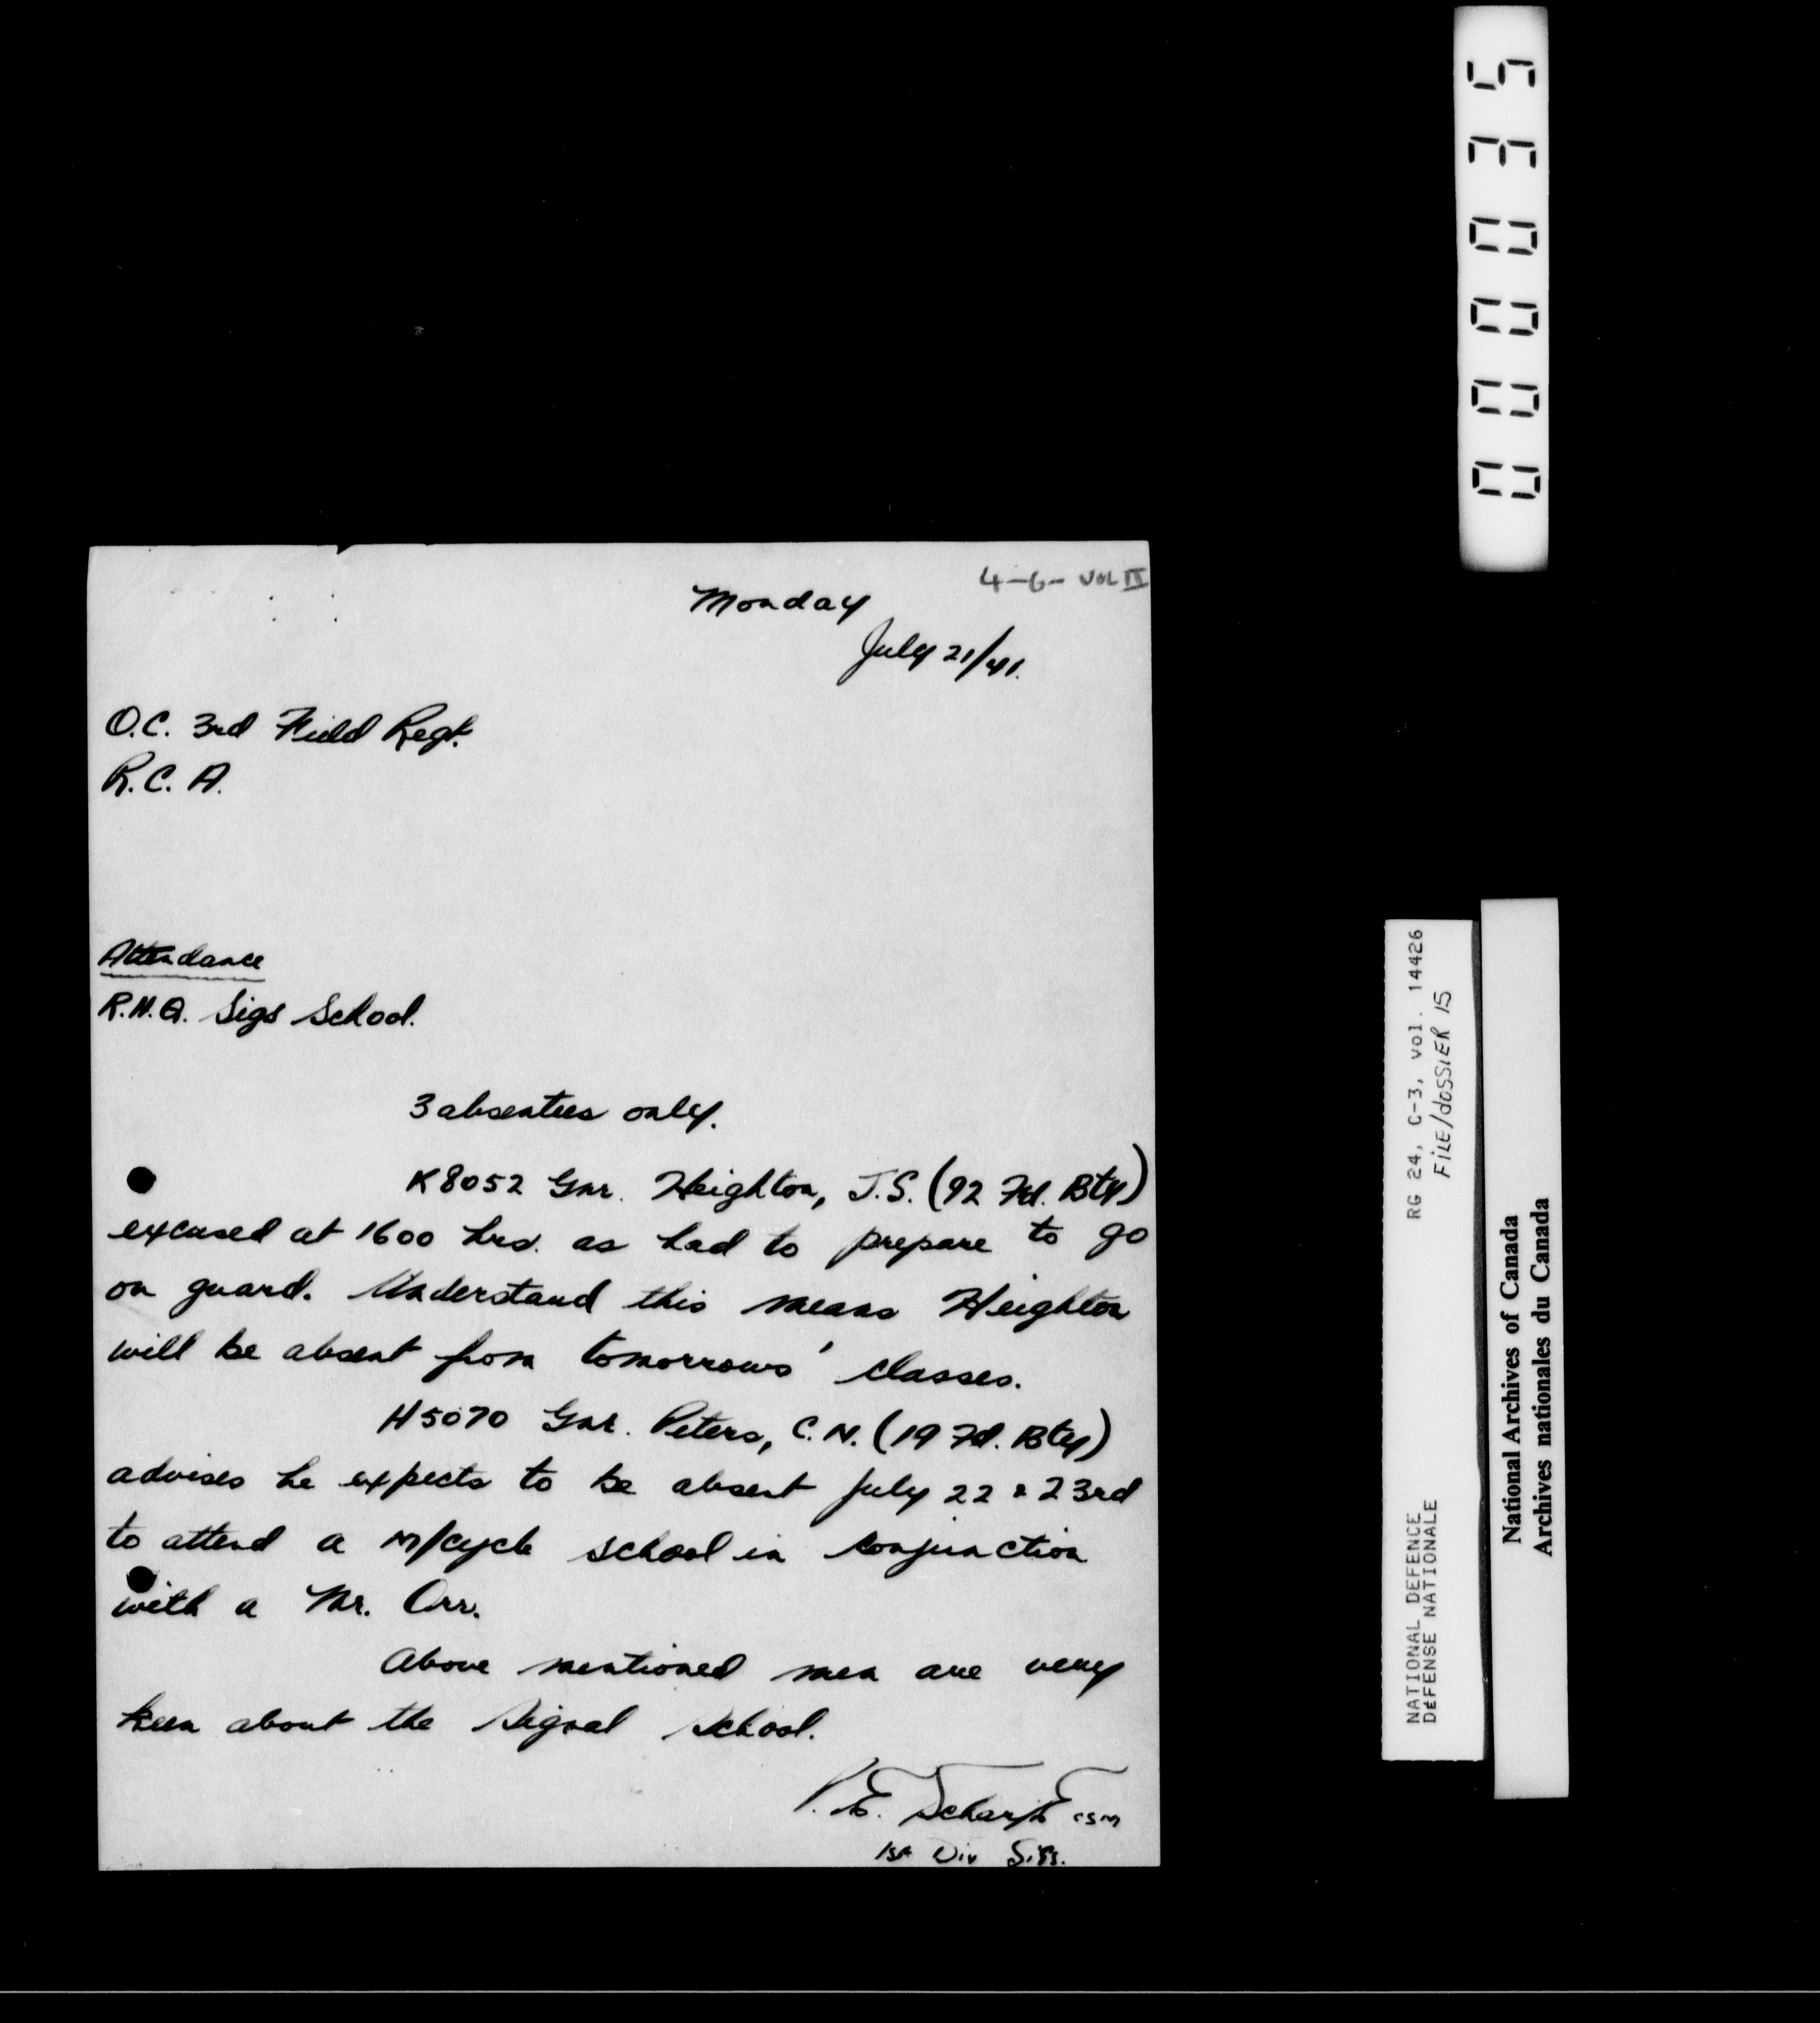 4-6- VOL II
Monday
July 21/41.
O.C. 3rd Field Regt.
R.C.A.
Attendance
R.H.Q. Sigs School.
3 absentees only.
K8052 Gnr. Heighton, J.S. (92 Fd. Bty)
excused at 1600 hrs. as had to prepare to go
on guard. Understand this means Heighton
will be absent from tomorrows' classes.
H5070 Gnr. Peters, C.N. (19 Fd. Bty)
advises he expects to be absent July 22 & 23rd
to attend a M/cycle school in conjunction
with a Mr. Orr.
Above mentioned men are very
keen about the Signal School.
P.E. Scharfe CSM
1st Div Sigs.
000035
NATIONAL DEFENCE RG 24, C-3, vol. 14426
DÉFENSE NATIONALE FILE/DOSSIER 15
National Archives of Canada
Archives nationales du Canada